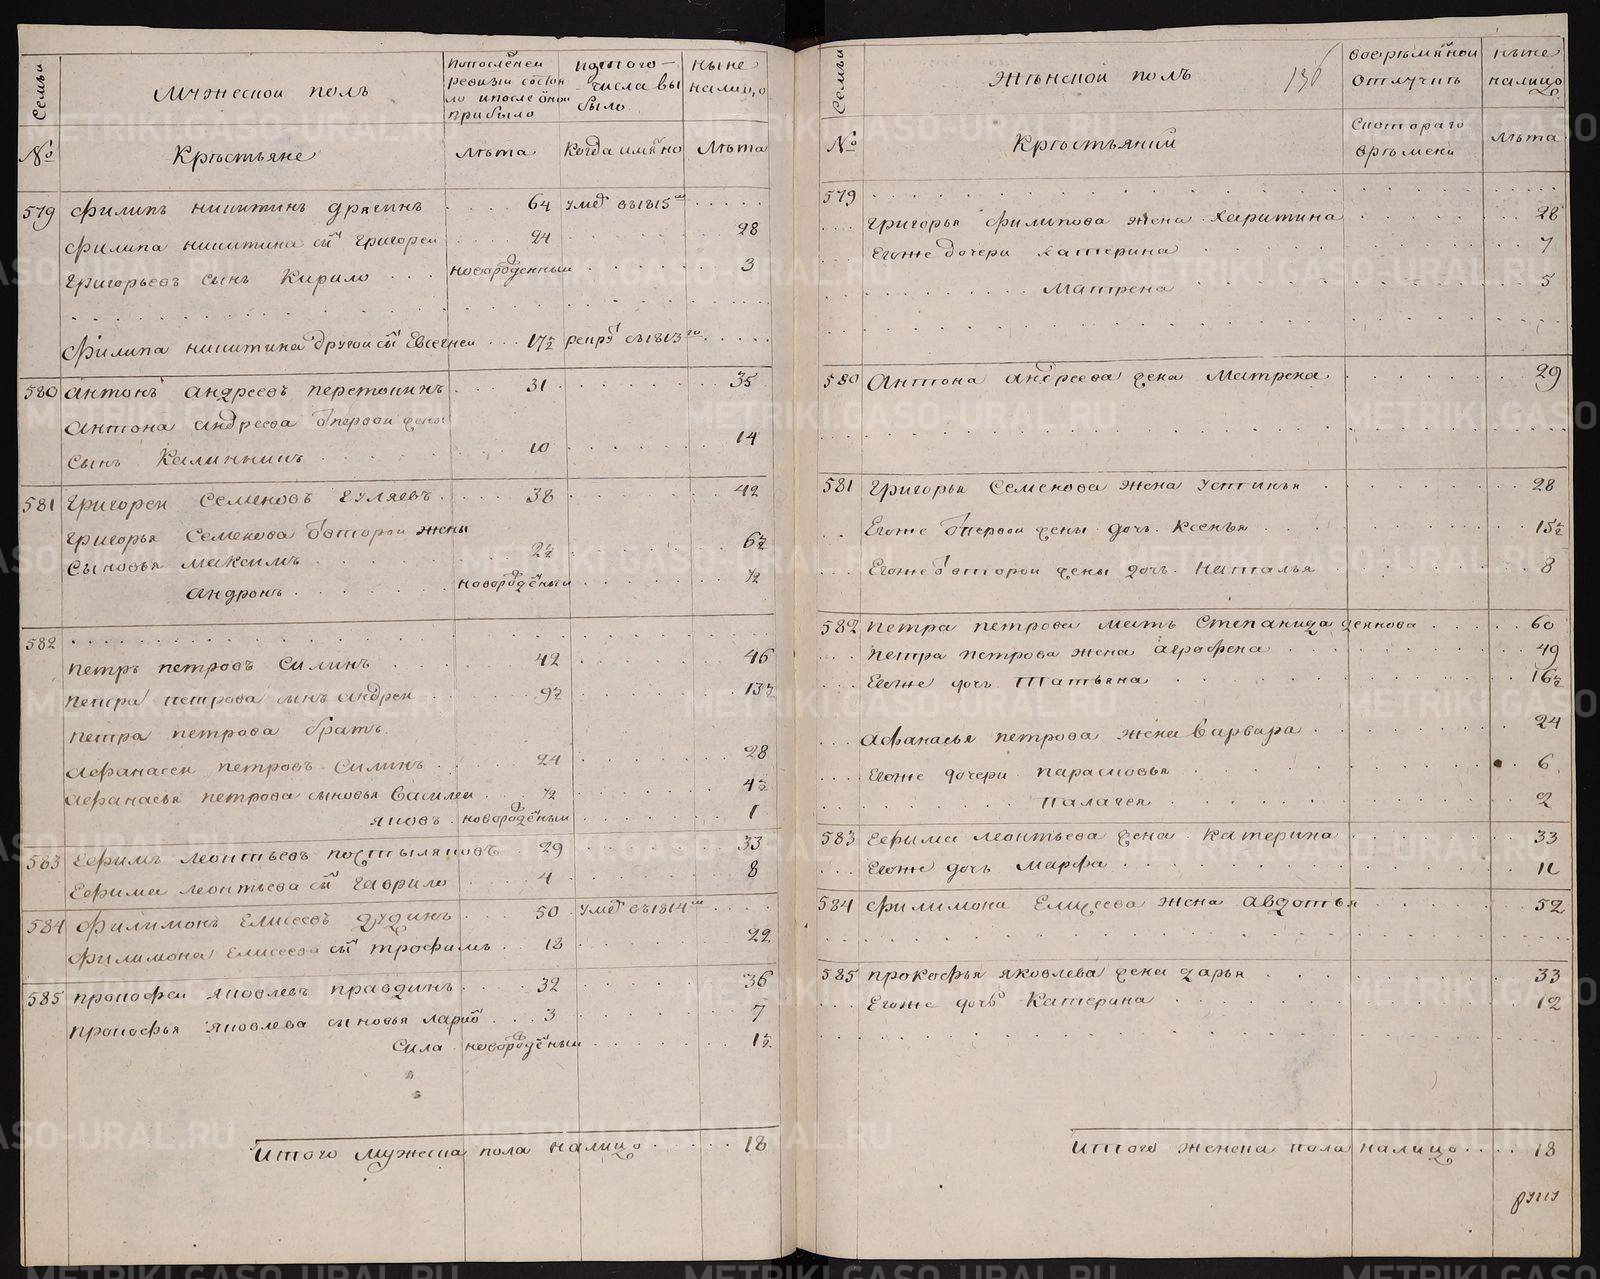 Семьи
Мужеской полъ
Попоследнеи ревизи состояло ипосле оной прибыло
Изтого числа выбыло
ныне налицо
№
Крестьяне
Лета
Когда имянно
Лета
579 Филипъ никитинъ дряпинъ 64 умре въ1815м
Филипа никитина сынъ григореи 24 28
Григорьевъ сынъ Кирило новорожденныи 3
Филипа никитина другои сынъ Евсегнеи 17½ рекру въ1813го
580 антонъ андреевъ перетокинъ 31 35
Антона андреева отпервои жены
сынъ Калинникъ 10 14
581 Григореи Семеновъ гуляевъ 38 42
Григорья Семенова отвторои жены
сыновья максимъ 2½ 6½
андронъ новорожденыи ½
582
петръ петровъ силинъ 42 46
петра петрова сынъ андреи 9½ 13½
петра петрова братъ
афанасеи петровъ силинъ 24 28
афанасья петрова сыновья василеи ½ 4½
яковъ новорожденыи 1
583 Ефимъ леонтьевъ постыляковъ 29 33
Ефима леонтьева сынъ гаврило 4 8
584 Филимонъ Елисеевъ дудинъ 50 умре въ1814м
Филимона Елисеева сынъ трофимъ 18 22
585 прокофеи яковлевъ правдинъ 32 36
прокофья яковлева сыновья ларио 3 7
Сила новорожденыи 1½
Итого мужеска пола налицо 18
Семьи
Женскои полъ
136
вовремяннои отлучке
ныне налицо
№
Крестьянки
Скотораго времени
Лета
579
Григорья филипова жена харитина 28
Егоже дочери катерина 7
Матрена 5
580 Антона андреева жена Матрена 29
581 Григорья Семенова жена устинья 28
Егоже отпервои жены дочь ксенья 15½
Егоже отвторои жены дочь наталья 8
582 петра петрова мать степанида деянова 60
петра петрова жена аграфена 49
Егоже дочь татьяна 16½
афанасья петрова жена варвара 24
Егоже дочери парасковья 6
палагея 2
583 Ефима леонтьева жена катерина 33
Егоже дочь марфа 11
584 филимона Елисеева жена авдотья 52
585 прокофья яковлева жена дарья 33
Егоже дочь катерина 12
Итого женска пола налицо 18
METRIKI.GASO-URAL.RU